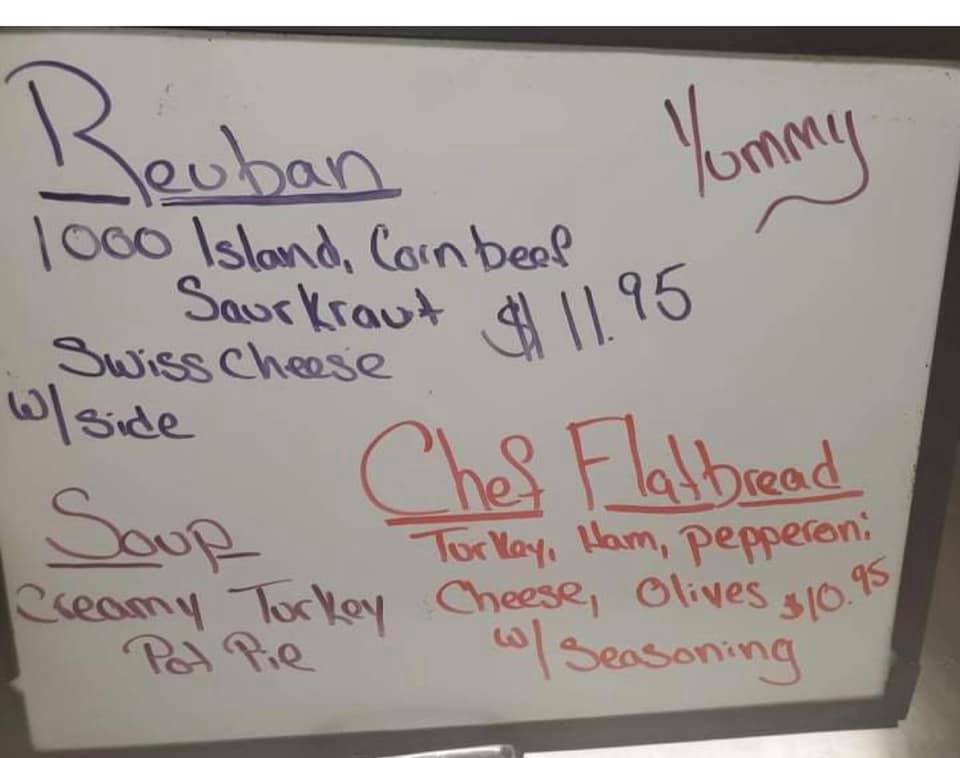 Reuban
Yummy
1000 Island, Corn beef
Saurkraut $11.95
Swiss Cheese
w/side
Chef Flatbread
Turkey, Ham, pepperoni
Cheese, Olives $10.95
w/ Seasoning
Soup
Creamy Turkey
Pot Pie